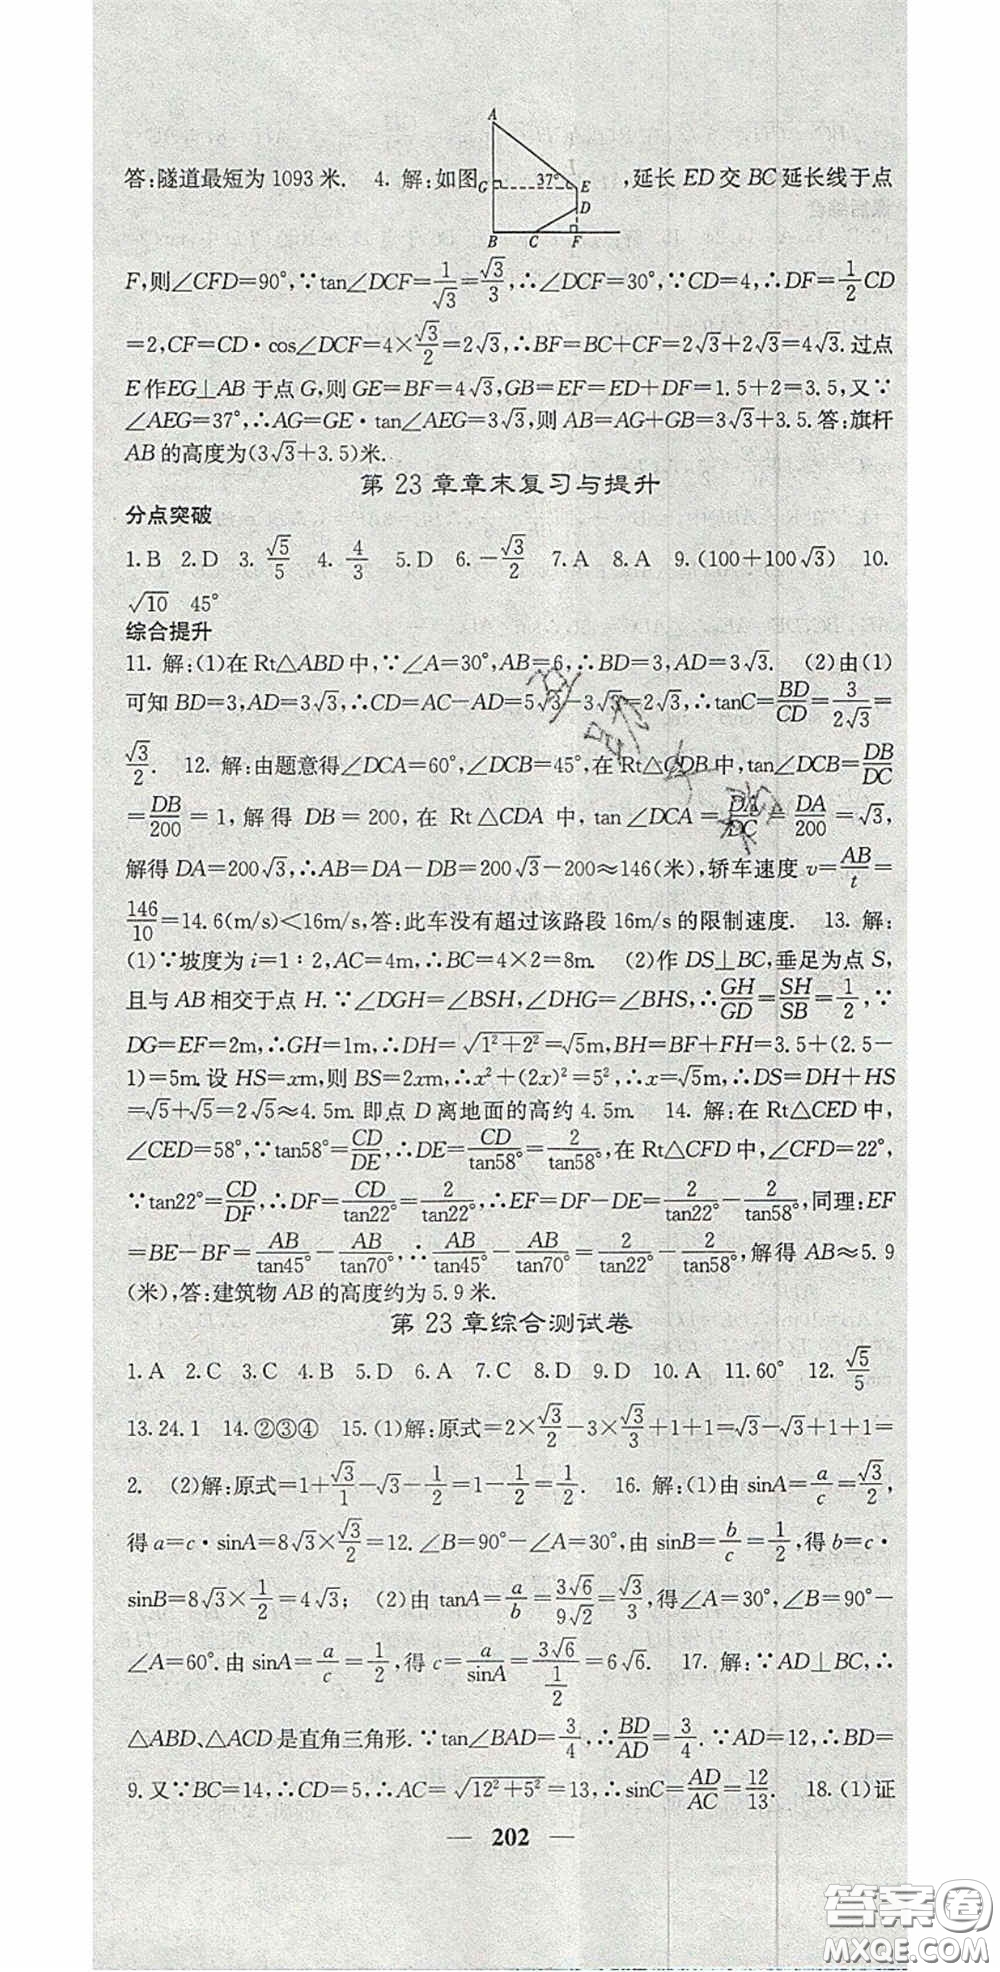 A
答:隧道最短为 1093 米. 4. 解:如图 G 37° E D B C F ,延长 ED 交 BC 延长线于点
F,则∠CFD=90°,∵tan∠DCF=1/√3=√3/3,∴∠DCF=30°,∵CD=4,∴DF=1/2CD
=2,CF=CD·cos∠DCF=4×√3/2=2√3,∴BF=BC+CF=2√3+2√3=4√3.过点
E 作EG⊥AB 于点 G,则 GE=BF=4√3,GB=EF=ED+DF=1.5+2=3.5,又∵
∠AEG=37°,∴AG=GE·tan∠AEG=3√3,则 AB=AG+GB=3√3+3.5.答:旗杆
AB 的高度为(3√3+3.5)米.
第 23 章章末复习与提升
分点突破
1.B 2.D 3. √5/5 4. 4/3 5.D 6.-√3/2 7.A 8.A 9.(100+100√3) 10.
√10 45°
综合提升
11. 解:(1)在 Rt△ABD 中,∵∠A=30°,AB=6,∴BD=3,AD=3√3. (2)由(1)
可知 BD=3,AD=3√3,∴CD=AC-AD=5√3-3√3=2√3,∴tanC=BD/CD=3/2√3=
√3/2. 12. 解:由题意得∠DCA=60°,∠DCB=45°,在 Rt△CDB 中,tan∠DCB=DB/DC
=DB/200=1,解得 DB=200,在 Rt△CDA 中,tan∠DCA=DA/DC=DA/200=√3,
解得 DA=200√3,∴AB=DA-DB=200√3-200≈146(米),轿车速度 v=AB/t=
146/10=14.6(m/s)<16m/s,答:此车没有超过该路段 16m/s 的限制速度. 13. 解:
(1)∵坡度为 i=1∶2,AC=4m,∴BC=4×2=8m. (2)作 DS⊥BC,垂足为点 S,
且与 AB 相交于点 H.∵∠DGH=∠BSH,∠DHG=∠BHS,∴GH/GD=SH/SB=1/2,∵
DG=EF=2m,∴GH=1m,∴DH=√1²+2²=√5m,BH=BF+FH=3.5+(2.5-
1)=5m.设 HS=xm,则 BS=2xm,∴x²+(2x)²=5²,∴x=√5m,∴DS=DH+HS
=√5+√5=2√5≈4.5m.即点 D 离地面的高约 4.5m. 14. 解:在 Rt△CED 中,
∠CED=58°,∵tan58°=CD/DE,∴DE=CD/tan58°=2/tan58°,在 Rt△CFD 中,∠CFD=22°,
∵tan22°=CD/DF,∴DF=CD/tan22°=2/tan22°,∴EF=DF-DE=2/tan22°-2/tan58°,同理:EF
=BE-BF=AB/tan45°-AB/tan70°,∴AB/tan45°-AB/tan70°=2/tan22°-2/tan58°,解得 AB≈5.9
(米),答:建筑物 AB 的高度约为 5.9 米.
第 23 章综合测试卷
1.A 2.C 3.C 4.B 5.D 6.A 7.C 8.D 9.D 10.A 11.60° 12.√5/5
13.24.1 14.②③④ 15.(1)解:原式=2×√3/2-3×√3/3+1+1=√3-√3+1+1=
2. (2)解:原式=1+√3/1-√3-1/2=1-1/2=1/2. 16. 解:(1)由 sinA=a/c=√3/2,
得 a=c·sinA=8√3×√3/2=12.∠B=90°-∠A=30°,由 sinB=b/c=1/2,得 b=c·
sinB=8√3×1/2=4√3; (2)由 tanA=a/b=3√6/9√2=√3/3,得∠A=30°,∠B=90°-
∠A=60°.由 sinA=a/c=1/2,得 c=a/sinA=3√6/(1/2)=6√6. 17. 解:∵AD⊥BC,∴
△ABD、△ACD 是直角三角形.∵tan∠BAD=3/4,∴BD/AD=3/4.∵AD=12,∴BD=
9.又∵BC=14,∴CD=5,∴AC=√12²+5²=13,∴sinC=AD/AC=12/13. 18.(1)证
— 202 —
答案圈
MXQE.COM